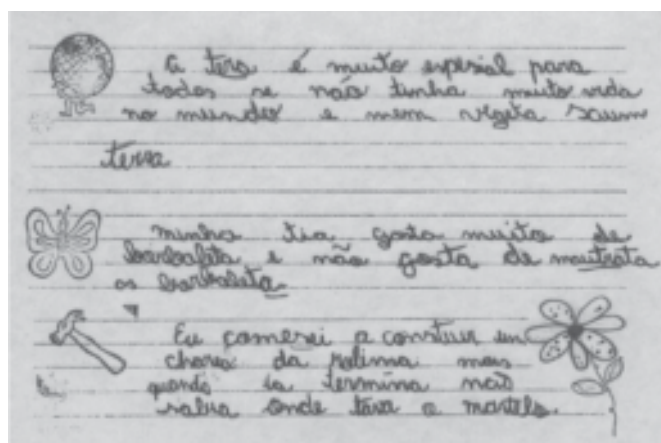 a tera é muito espesial para
todos se não tinha muito vida
no mundo e nem vegita saum
terra
minha tia gosta muitos de
borboleta e não gosta de mautrata
as borboleta.
Eu comesei a constuir um
da mais
quando ia termina não
sabia onde tava o martelo.